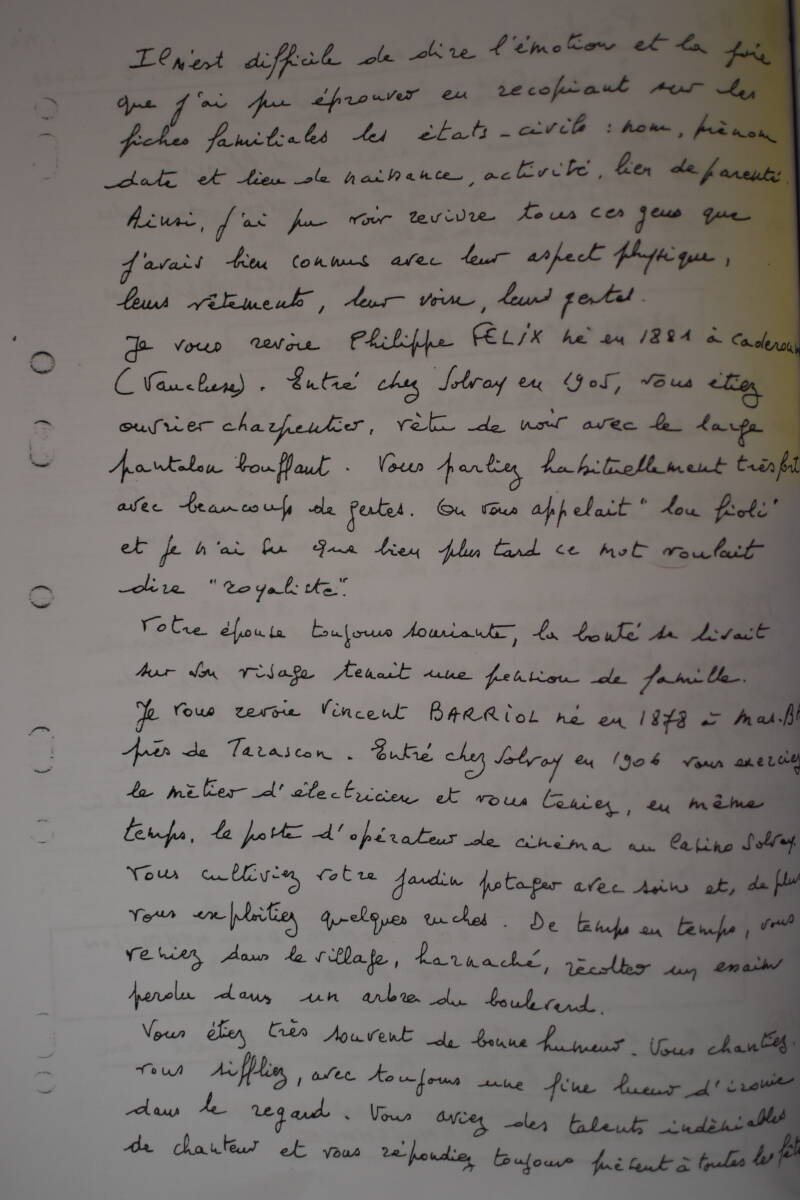 Il m'est difficile de dire l'émotion et la joie
que j'ai pu éprouver en recopiant sur les
fiches familiales les états-civils : nom, prénom
date et lieu de naissance, activité, lien de parenté.
Ainsi, j'ai pu voir revivre tous ces gens que
j'avais bien connus avec leur aspect physique,
leurs vêtements, leur voix, leurs gestes.
Je vous revois Philippe FELIX né en 1881 à Caderous
(Vaucluse). Entré chez Solvay en 1905, vous étiez
ouvrier charpentier, vêtu de noir avec le large
pantalon bouffant. Vous parliez habituellement très fort
avec beaucoup de gestes. On vous appelait "lou fioli"
et je n'ai su que bien plus tard ce mot voulait
dire "royaliste".
Votre épouse toujours souriante, la bonté se lisait
sur son visage tenait une pension de famille.
Je vous revois Vincent BARRIOL né en 1878 à Mas-Bl
près de Tarascon. Entré chez Solvay en 1906 vous exerciez
le métier d'électricien et vous teniez, en même
temps, le poste d'opérateur de cinéma au Casino Solvay.
Vous cultiviez votre jardin potager avec soins et, de plus
vous exploitiez quelques ruches. De temps en temps, vous
veniez dans le village, harnaché, récolter un essaim
perdu dans un arbre du boulevard.
Vous étiez très souvent de bonne humeur. Vous chantiez,
vous siffliez, avec toujours une fine lueur d'ironie
dans le regard. Vous aviez des talents indéniables
de chanteur et vous répondiez toujours présent à toutes les fêtes